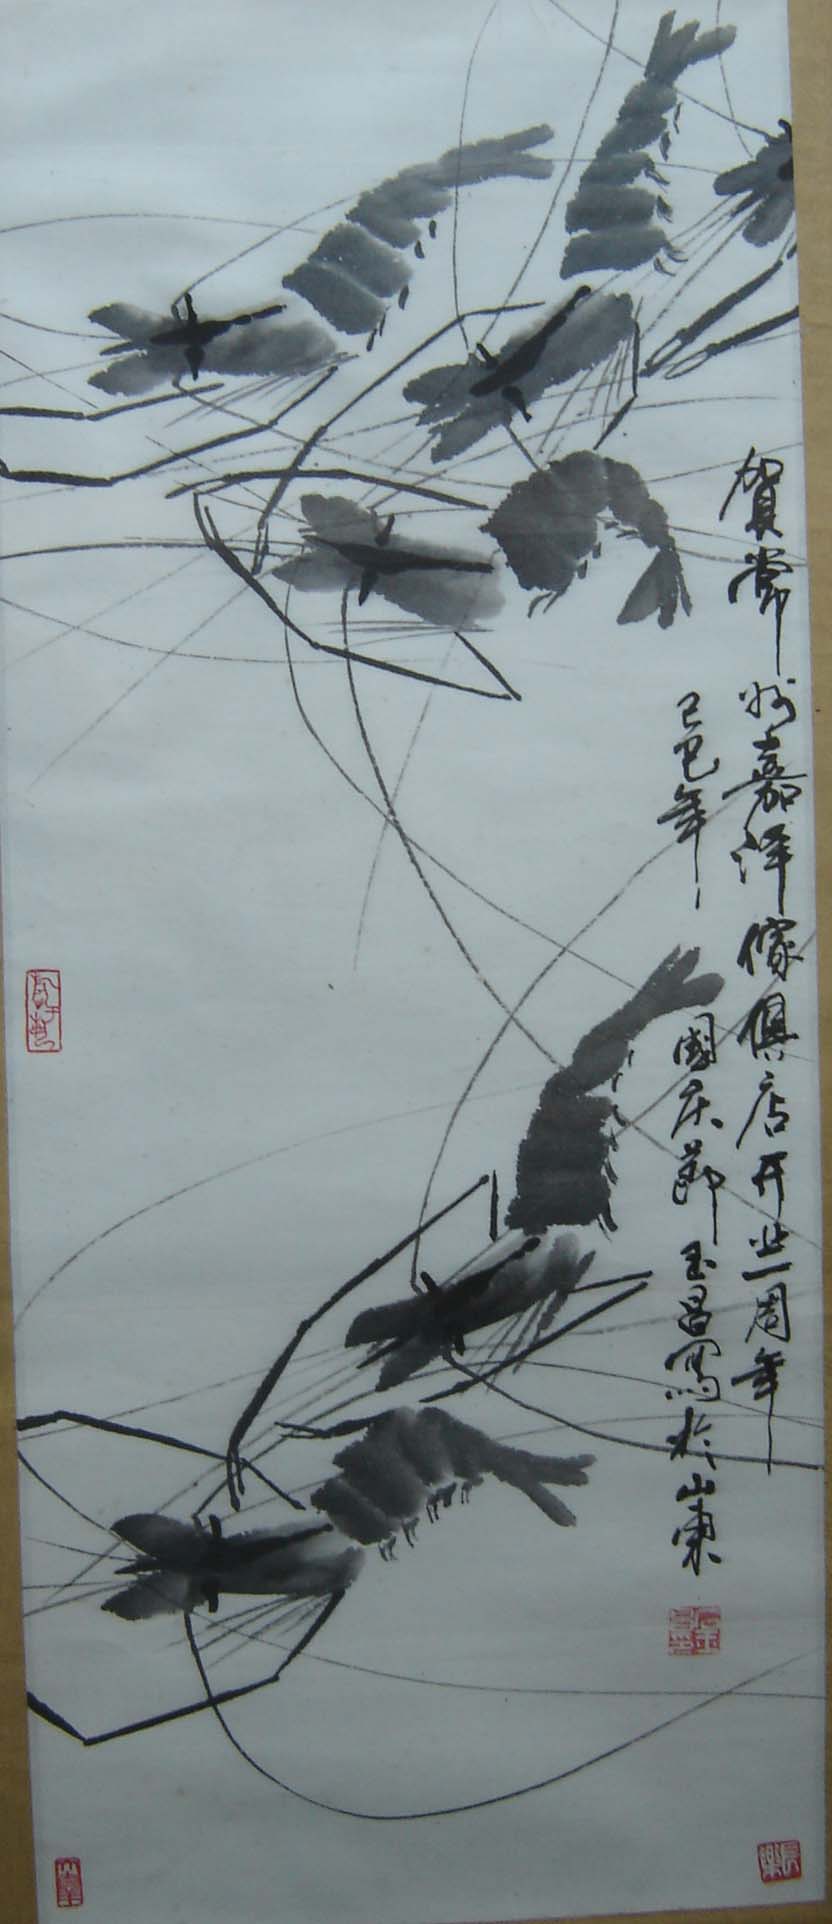 贺常州嘉泽傢俱店开业一周年
己巳年国庆节玉昌写於山东